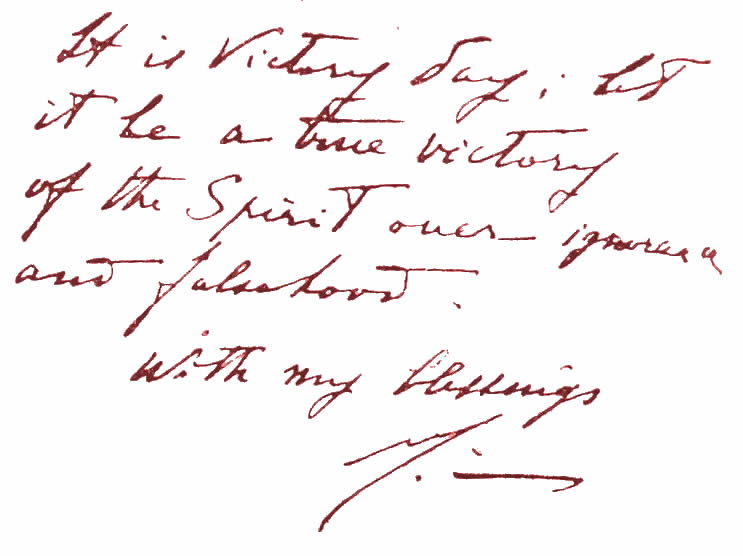 It is Victory Day; let
it be a true victory
of the Spirit over ignorance
and falsehood.
With my blessings